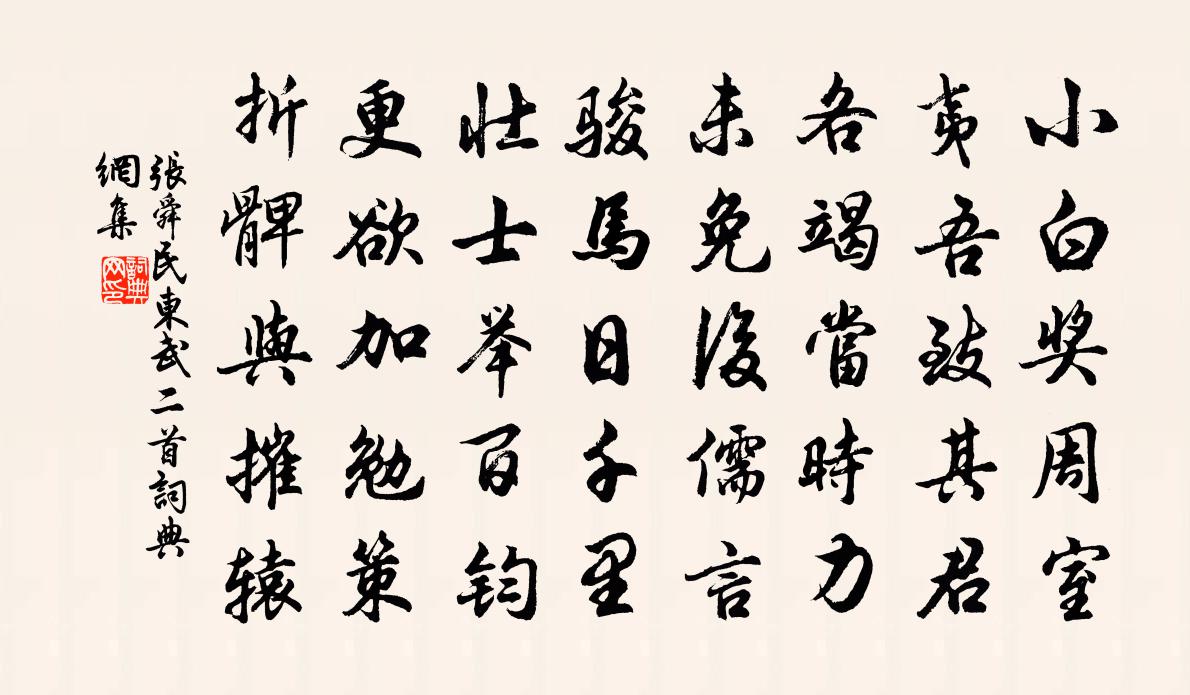 小白奖周室
夷吾致其君
各竭當時力
未免後儒言
骏馬日千里
壮士举百钧
更欲加勉策
折髀與摧辕
張舜民東武二首詞典
網集
詞典網印